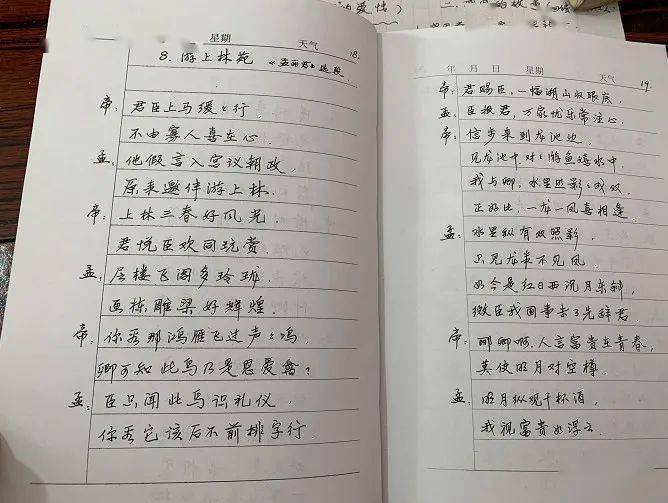 的爱情)
二.
星期 天气 18.
8. 游上林苑 《孟丽君》选段
帝: 君臣上马缓缓行,
不由寡人喜在心.
孟: 他假言入宫议朝政,
原来邀伴游上林.
帝: 上林三春好风光,
君悦臣欢同玩赏.
孟: 层楼飞阁多玲珑,
画栋雕梁好辉煌.
帝: 你看那鸿雁飞过声声鸣,
卿可知此鸟乃是恩爱禽?
孟: 臣只闻此鸟识礼仪,
你看它该后不前排字行.
年 月 日 星期 天气 19.
帝: 君赐臣,一幅湖山收眼底,
孟: 臣扶君,万家忧乐常注心.
帝: 信步来到龙池边,
见龙池中对对游鱼嬉水中.
我与卿,水里照影影成双,
正好比,一龙一凤喜相逢.
孟: 水里纵有双照影,
只见龙来不见凤.
如今是红日西沉月东斜,
微臣我回事去了先辞君.
帝: 郦卿啊,人言富贵在青春,
莫使明月对空樽.
孟: 明月纵观千杯酒,
我视富贵如浮云.